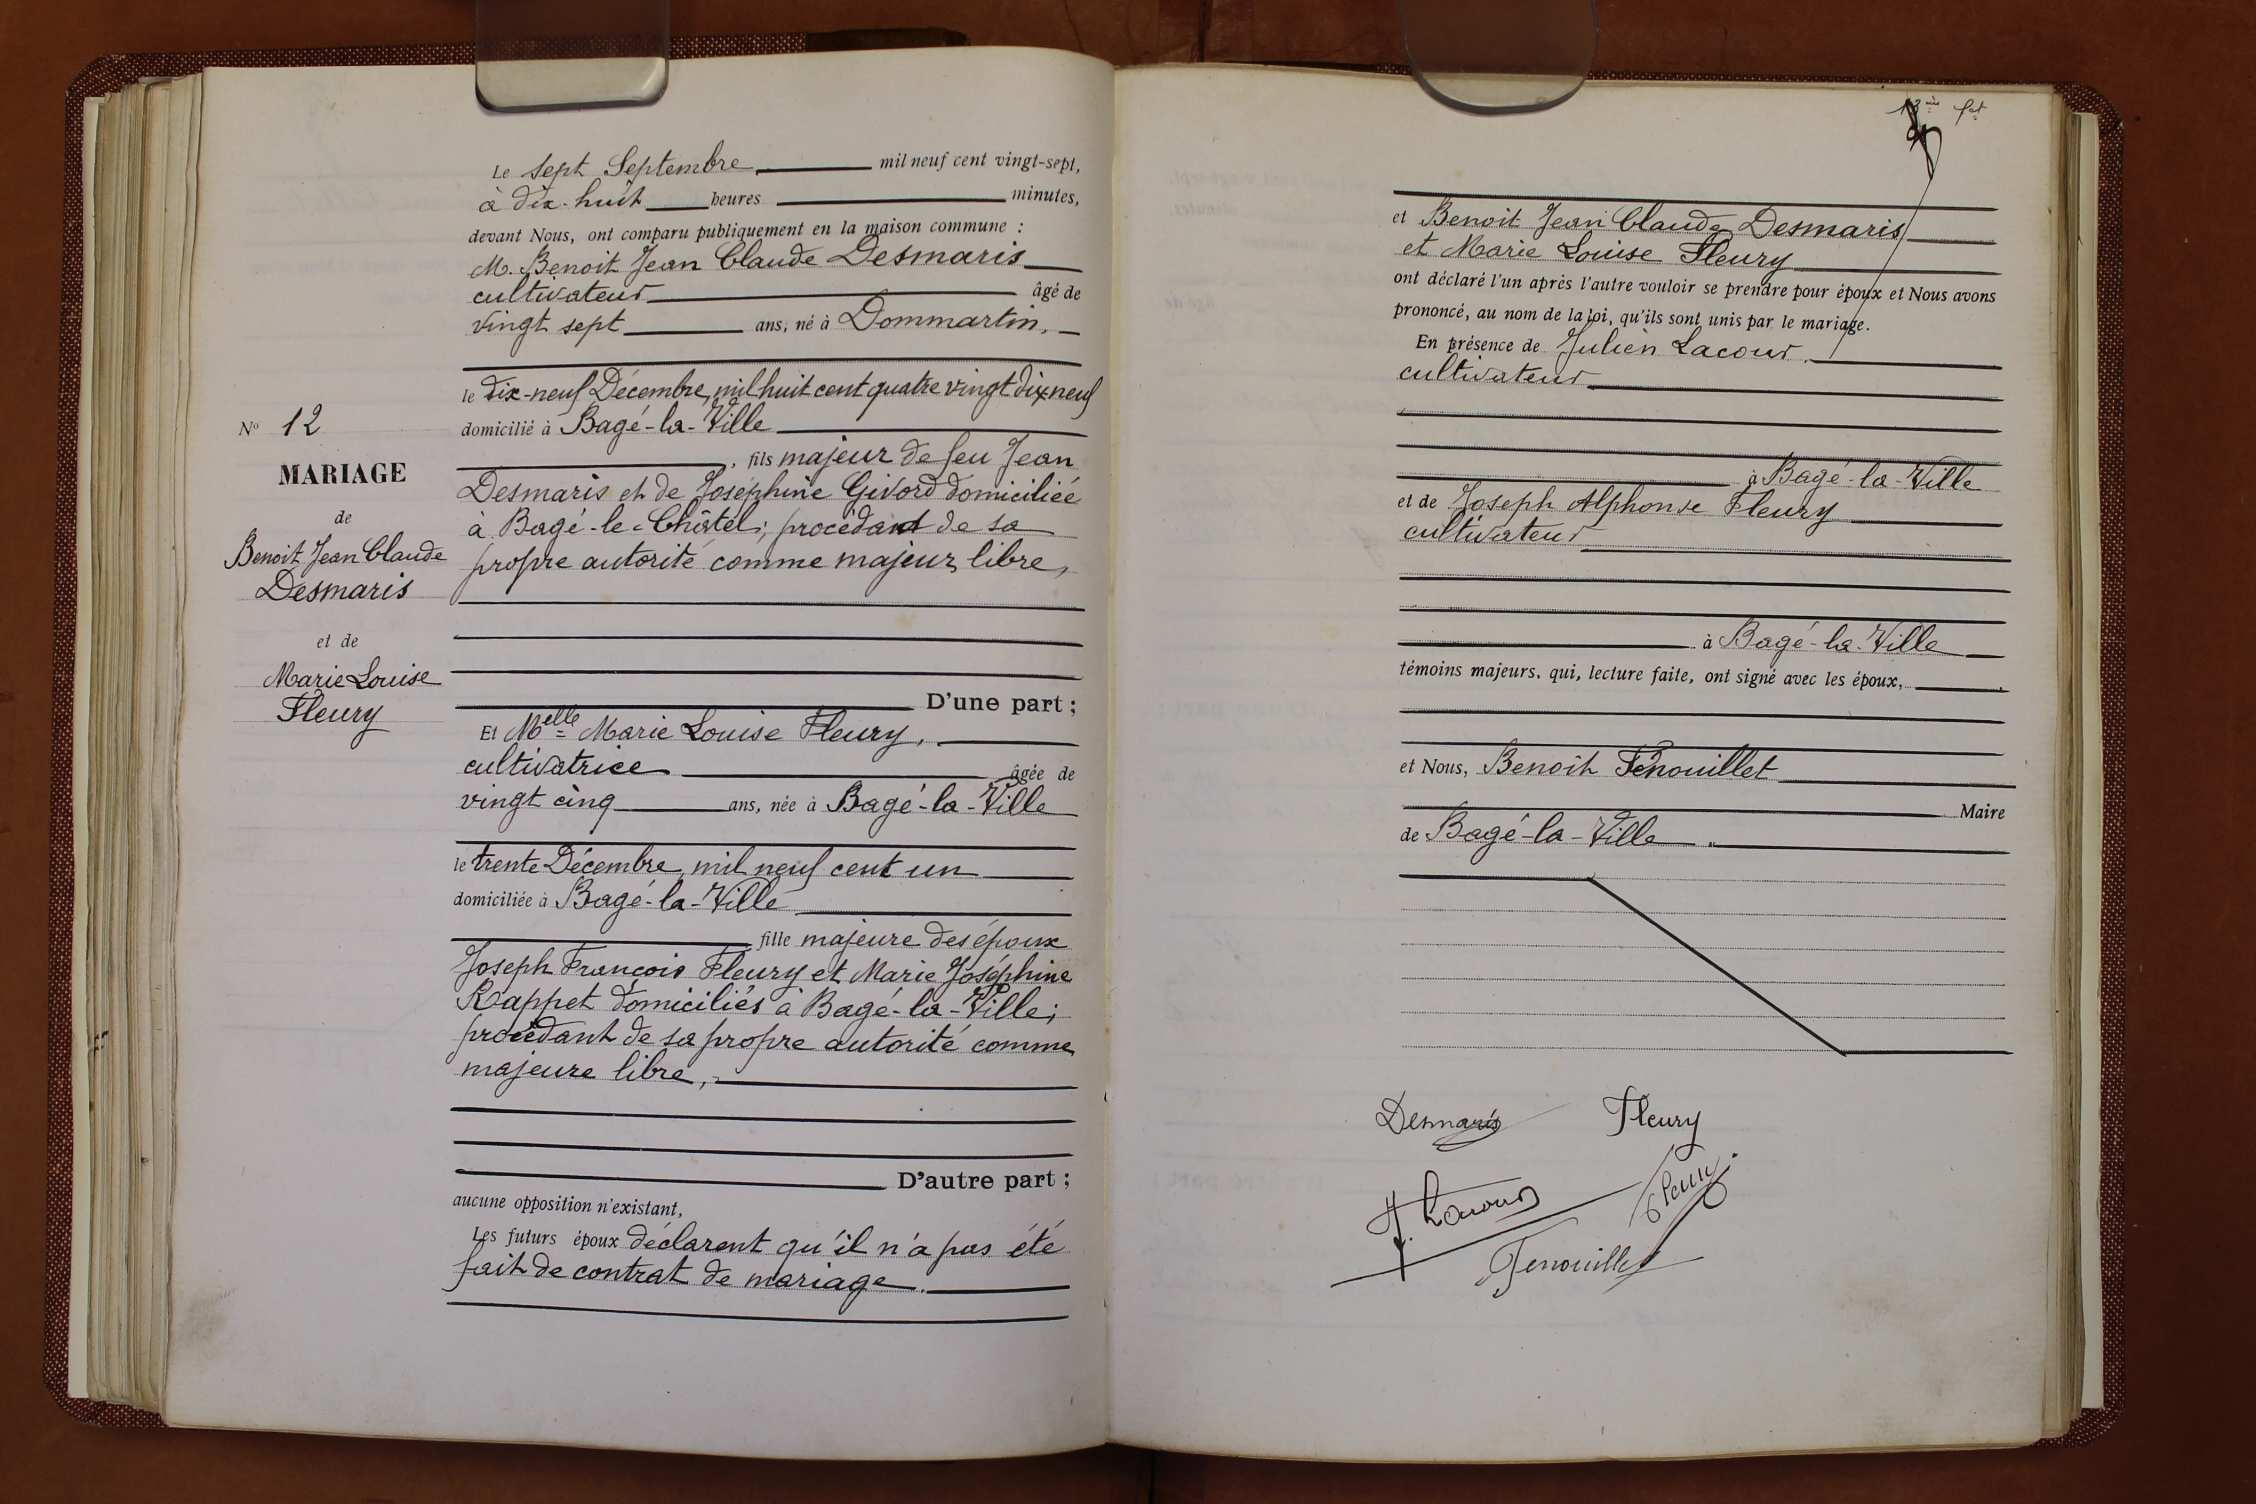 N° 12
MARIAGE
de
Benoit Jean Claude
Desmaris
et de
Marie Louise
Fleury
Le sept Septembre mil neuf cent vingt-sept,
à dix-huit heures minutes,
devant Nous, ont comparu publiquement en la maison commune :
M. Benoit Jean Claude Desmaris
cultivateur âgé de
vingt sept ans, né à Dommartin,
le dix-neuf Décembre, mil huit cent quatre vingt dix neuf
domicilié à Bagé-la-Ville
, fils majeur de feu Jean
Desmaris et de Joséphine Givord domiciliée
à Bagé-le-Châtel; procédant de sa
propre autorité comme majeur libre,
D'une part ;
Et Melle Marie Louise Fleury,
cultivatrice âgée de
vingt cinq ans, née à Bagé-la-Ville
le trente Décembre, mil neuf cent un
domiciliée à Bagé-la-Ville
fille majeure des époux
Joseph François Fleury et Marie Joséphine
Rappet domiciliés à Bagé-la-Ville;
procédant de sa propre autorité comme
majeure libre,
D'autre part ;
aucune opposition n'existant,
Les futurs époux déclarent qu'il n'a pas été
fait de contrat de mariage.
13 me fet
et Benoit Jean Claude Desmaris
et Marie Louise Fleury
ont déclaré l'un après l'autre vouloir se prendre pour époux et Nous avons
prononcé, au nom de la loi, qu'ils sont unis par le mariage.
En présence de Julien Lacour
cultivateur
à Bagé-la-Ville
et de Joseph Alphonse Fleury
cultivateur
à Bagé-la-Ville
témoins majeurs, qui, lecture faite, ont signé avec les époux,
et Nous, Benoit Fenouillet
Maire
de Bagé-la-Ville.
Desmaris Fleury
J. Lacour Fleury
Fenouillet